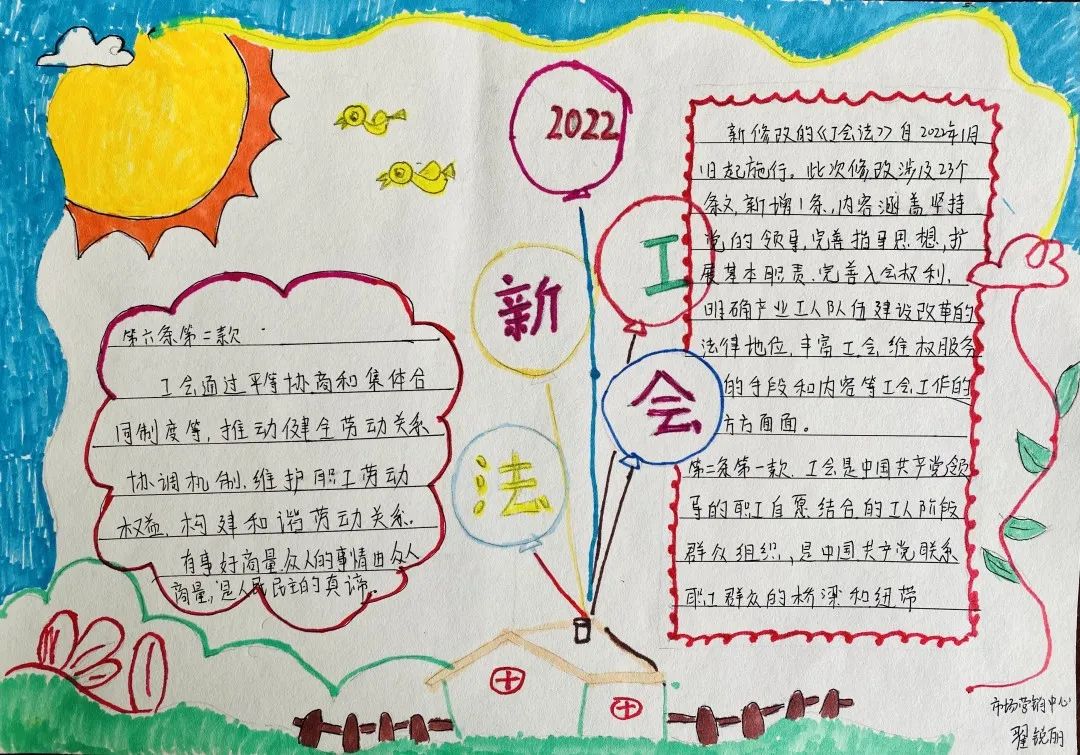 2022
新
工
会
法
第六条第二款
工会通过平等协商和集体合
同制度等，推动健全劳动关系
协调机制，维护职工劳动
权益，构建和谐劳动关系。
有事好商量，众人的事情由众人
商量，是人民民主的真谛。
新修改的《工会法》自2022年1月
1日起施行。此次修改涉及23个
条文，新增1条，内容涵盖坚持
党的领导，完善指导思想，扩
展基本职责、完善入会权利、
明确产业工人队伍建设改革的
法律地位，丰富工会维权服务
的手段和内容等工会工作的
方方面面。
第二条第一款 工会是中国共产党领
导的职工自愿结合的工人阶段
群众组织，是中国共产党联系
职工群众的桥梁和纽带
市场营销中心
翟锐丽